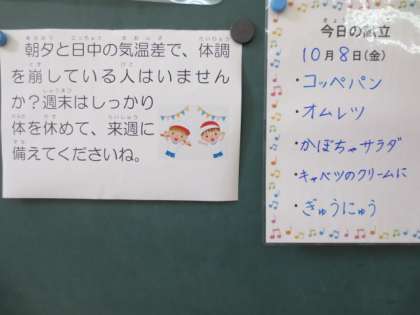 朝夕と日中の気温差で、体調
を崩している人はいません
か？週末はしっかり
体を休めて、来週に
備えてくださいね。
今日の献立
10月8日(金)
・コッペパン
・オムレツ
・かぼちゃサラダ
・キャベツのクリームに
・ぎゅうにゅう